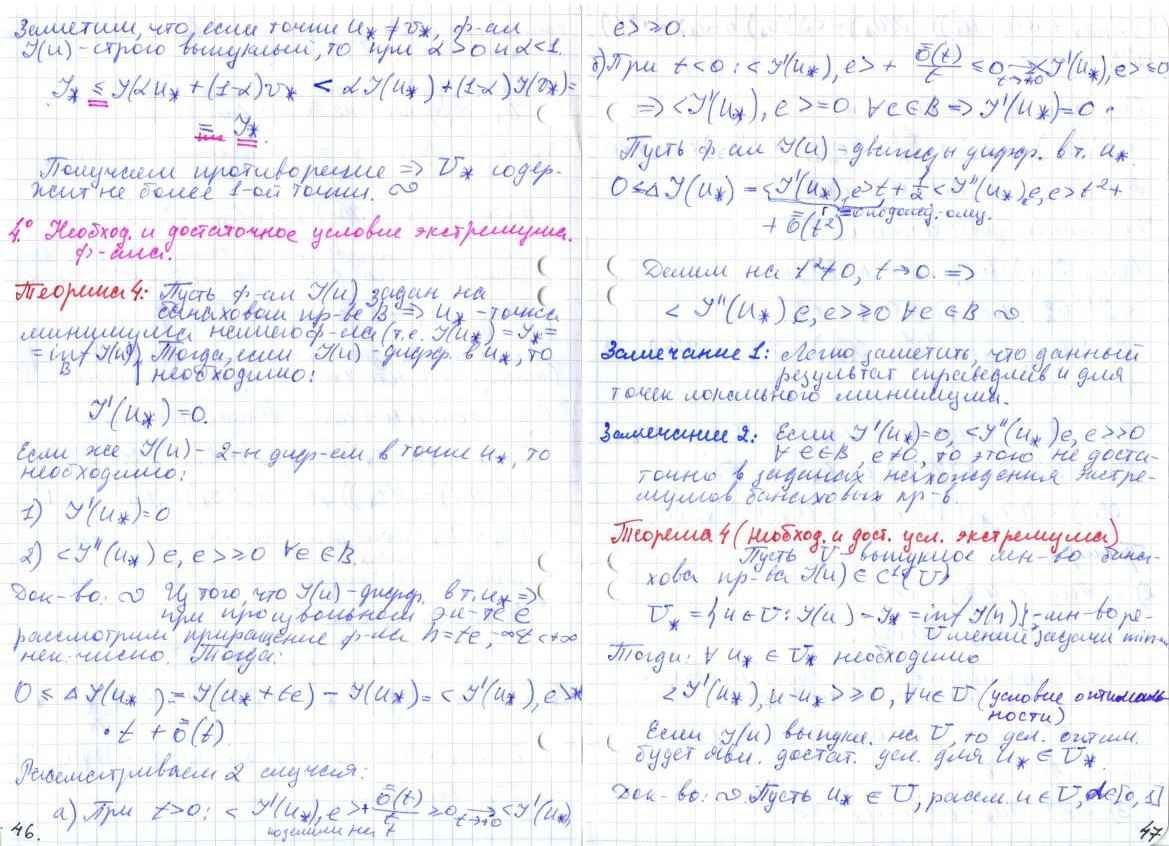 Заметим, что, если точки u* ≠ v*, ф-ал
J(u) - строго выпуклый, то при α>0 и α<1.
J* ≤ J(αu* + (1-α)v*) < αJ(u*) + (1-α)J(v*) =
= J*.
Получаем противоречие => U* содер-
жит не более 1-ой точки. ∾
4.° Необход. и достаточное условие экстремума.
ф-ала.
Теорема 4: Пусть ф-ал J(u) задан на
банаховом пр-ве B => u* - точка
минимума нашего ф-ла (т.е. J(u*) = J* =
= inf J(u)). Тогда, если J(u) - дифф. в u*, то
B
необходимо:
J'(u*) = 0.
Если же J(u) - 2-ды диф-ем. в точке u*, то
необходимо:
1) J'(u*) = 0
2) <J''(u*)e, e> ≥ 0 ∀e∈B.
Док-во: ∾ Из того, что J(u) - дифф. в т. u* =>
при произвольном эл-те e
рассмотрим приращение ф-ла h = te, -∞<t<+∞
нек. число. Тогда:
0 ≤ ΔJ(u*) = J(u* + te) - J(u*) = <J'(u*), e> *
· t + ō(t).
Рассматриваем 2 случая:
а) При t>0: <J'(u*), e> + ō(t)/t ≥ 0 →t→+0 <J'(u*),
поделили на t
46.
e> ≥ 0.
б) При t<0: <J'(u*), e> + ō(t)/t ≤ 0 →t→-0 <J'(u*), e> ≤ 0
=> <J'(u*), e> = 0 ∀e∈B => J'(u*) = 0.
Пусть ф-ал J(u) - дважды дифф. в т. u*.
0 ≤ ΔJ(u*) = <J'(u*), e>t + 1/2 <J''(u*)e, e>t² +
+ ō(t²)
Делим на t² ≠ 0, t→0. =>
<J''(u*)e, e> ≥ 0 ∀e∈B ∾
Замечание 1: Легко заметить, что данный
результат справедлив и для
точек локального минимума.
Замечание 2: Если J'(u*) = 0, <J''(u*)e, e> > 0
∀e∈B, e≠0, то этого не доста-
точно в задачах нахождения экстре-
мумов банаховых пр-в.
Теорема 4 (необход. и дост. усл. экстремума)
Пусть U выпуклое мн-во бана-
хова пр-ва J(u) ∈ C¹(U)
U* = {u∈U: J(u) = J* = inf J(u)} - мн-во ре-
U шений задачи min-
Тогда: ∀ u* ∈ U* необходимо
<J'(u*), u-u*> ≥ 0, ∀u∈U (условие оптималь-
ности)
Если J(u) выпукл. на U, то усл. оптим.
будет явл. достат. усл. для u* ∈ U*.
Док-во: ∾ Пусть u* ∈ U, рассм. u∈U, α∈[0, 1]
47